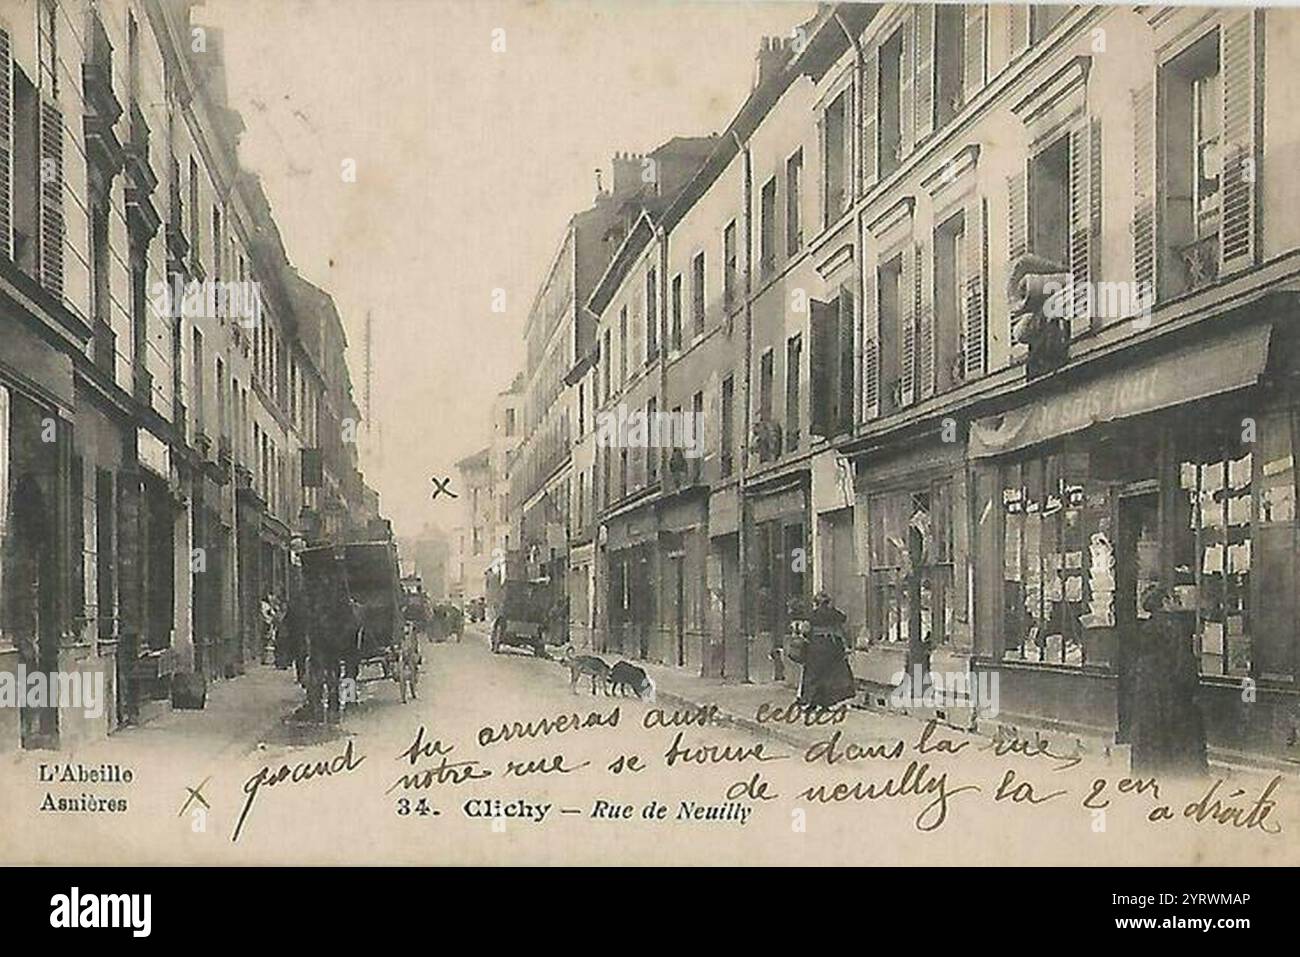 L'Abeille
Asnières
x quand tu arriveras aux
notre rue se trouve dans la rue
de neuilly la 2em a droite
34. Clichy — Rue de Neuilly
x
alamy
alamy
Image ID: 2YRWWMAP
www.alamy.com